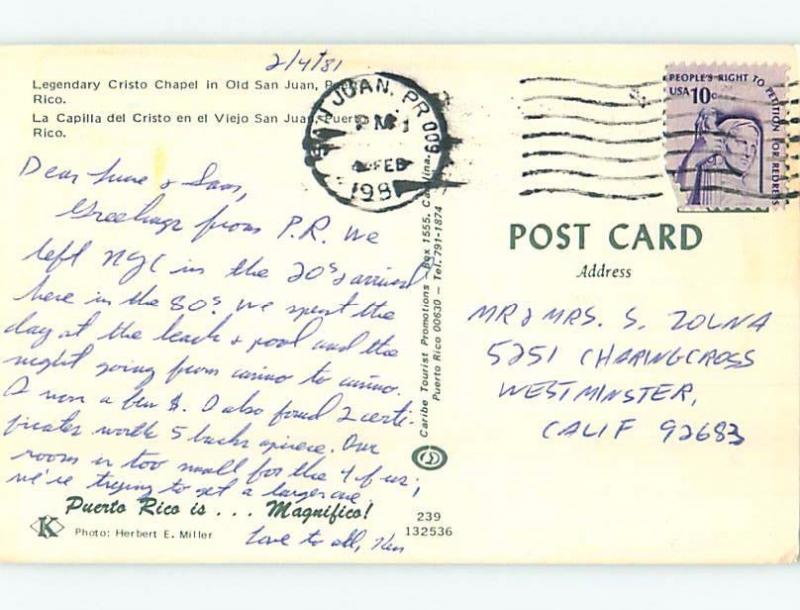 2/4/81
Legendary Cristo Chapel in Old San Juan, Puerto
Rico.
La Capilla del Cristo en el Viejo San Juan, Puerto
Rico.
SAN JUAN, PR 009
PM
FEB
1981
PEOPLE'S RIGHT TO PETITION FOR REDRESS
USA 10c
Dear June & Sam,
Greetings from P.R. We
left NYC in the 20's & arrived
here in the 80's. We spent the
day at the beach & pool and the
night going from casino to casino.
I won a few $. I also found 2 certi-
ficates worth 5 bucks apiece. Our
room is too small for the 4 of us;
we're trying to get a larger one!
Love to all, Ken
Puerto Rico is . . . Magnifico!
K
Photo: Herbert E. Miller
239
132536
Caribe Tourist Promotions Box 1555, Carolina,
Puerto Rico 00630 — Tel. 791-1874
POST CARD
Address
MR & MRS. S. ZOLNA
5251 CHARINGCROSS
WESTMINSTER,
CALIF 92683